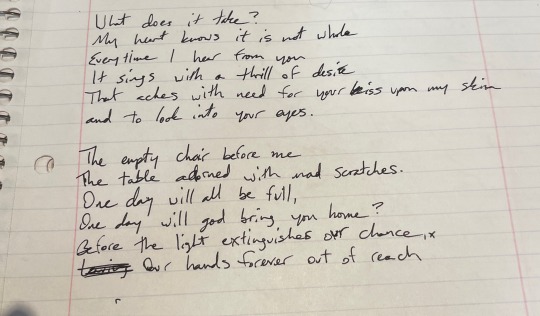 What does it take?
My heart knows it is not whole
Every time I hear from you
It sings with a thrill of desire
That aches with need for your kiss upon my skin
and to look into your eyes.
The empty chair before me
The table adorned with mad scratches.
One day will all be full,
One day will god bring you home?
Before the light extinguishes our chance,
Our hands forever out of reach